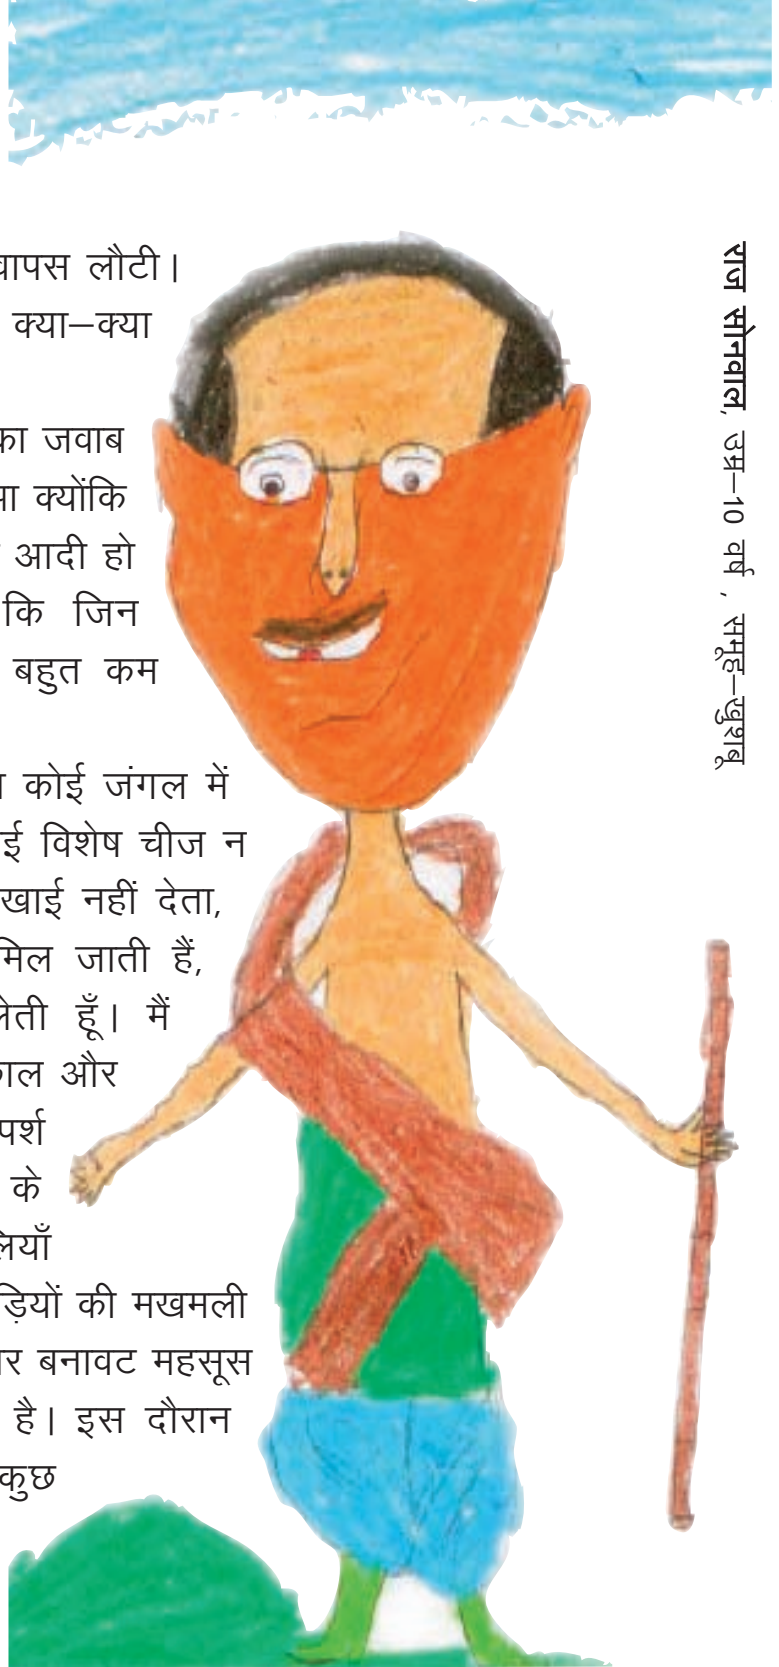 वापस लौटी।
क्या–क्या
का जवाब
क्योंकि
आदी हो
कि जिन
बहुत कम
कोई जंगल में
विशेष चीज न
नहीं देता,
मिल जाती हैं,
लेती हूँ। मैं
और
के
की मखमली
बनावट महसूस
है। इस दौरान
कुछ
राज सोनवाल, उम्र–10 वर्ष , समूह–खुशबू